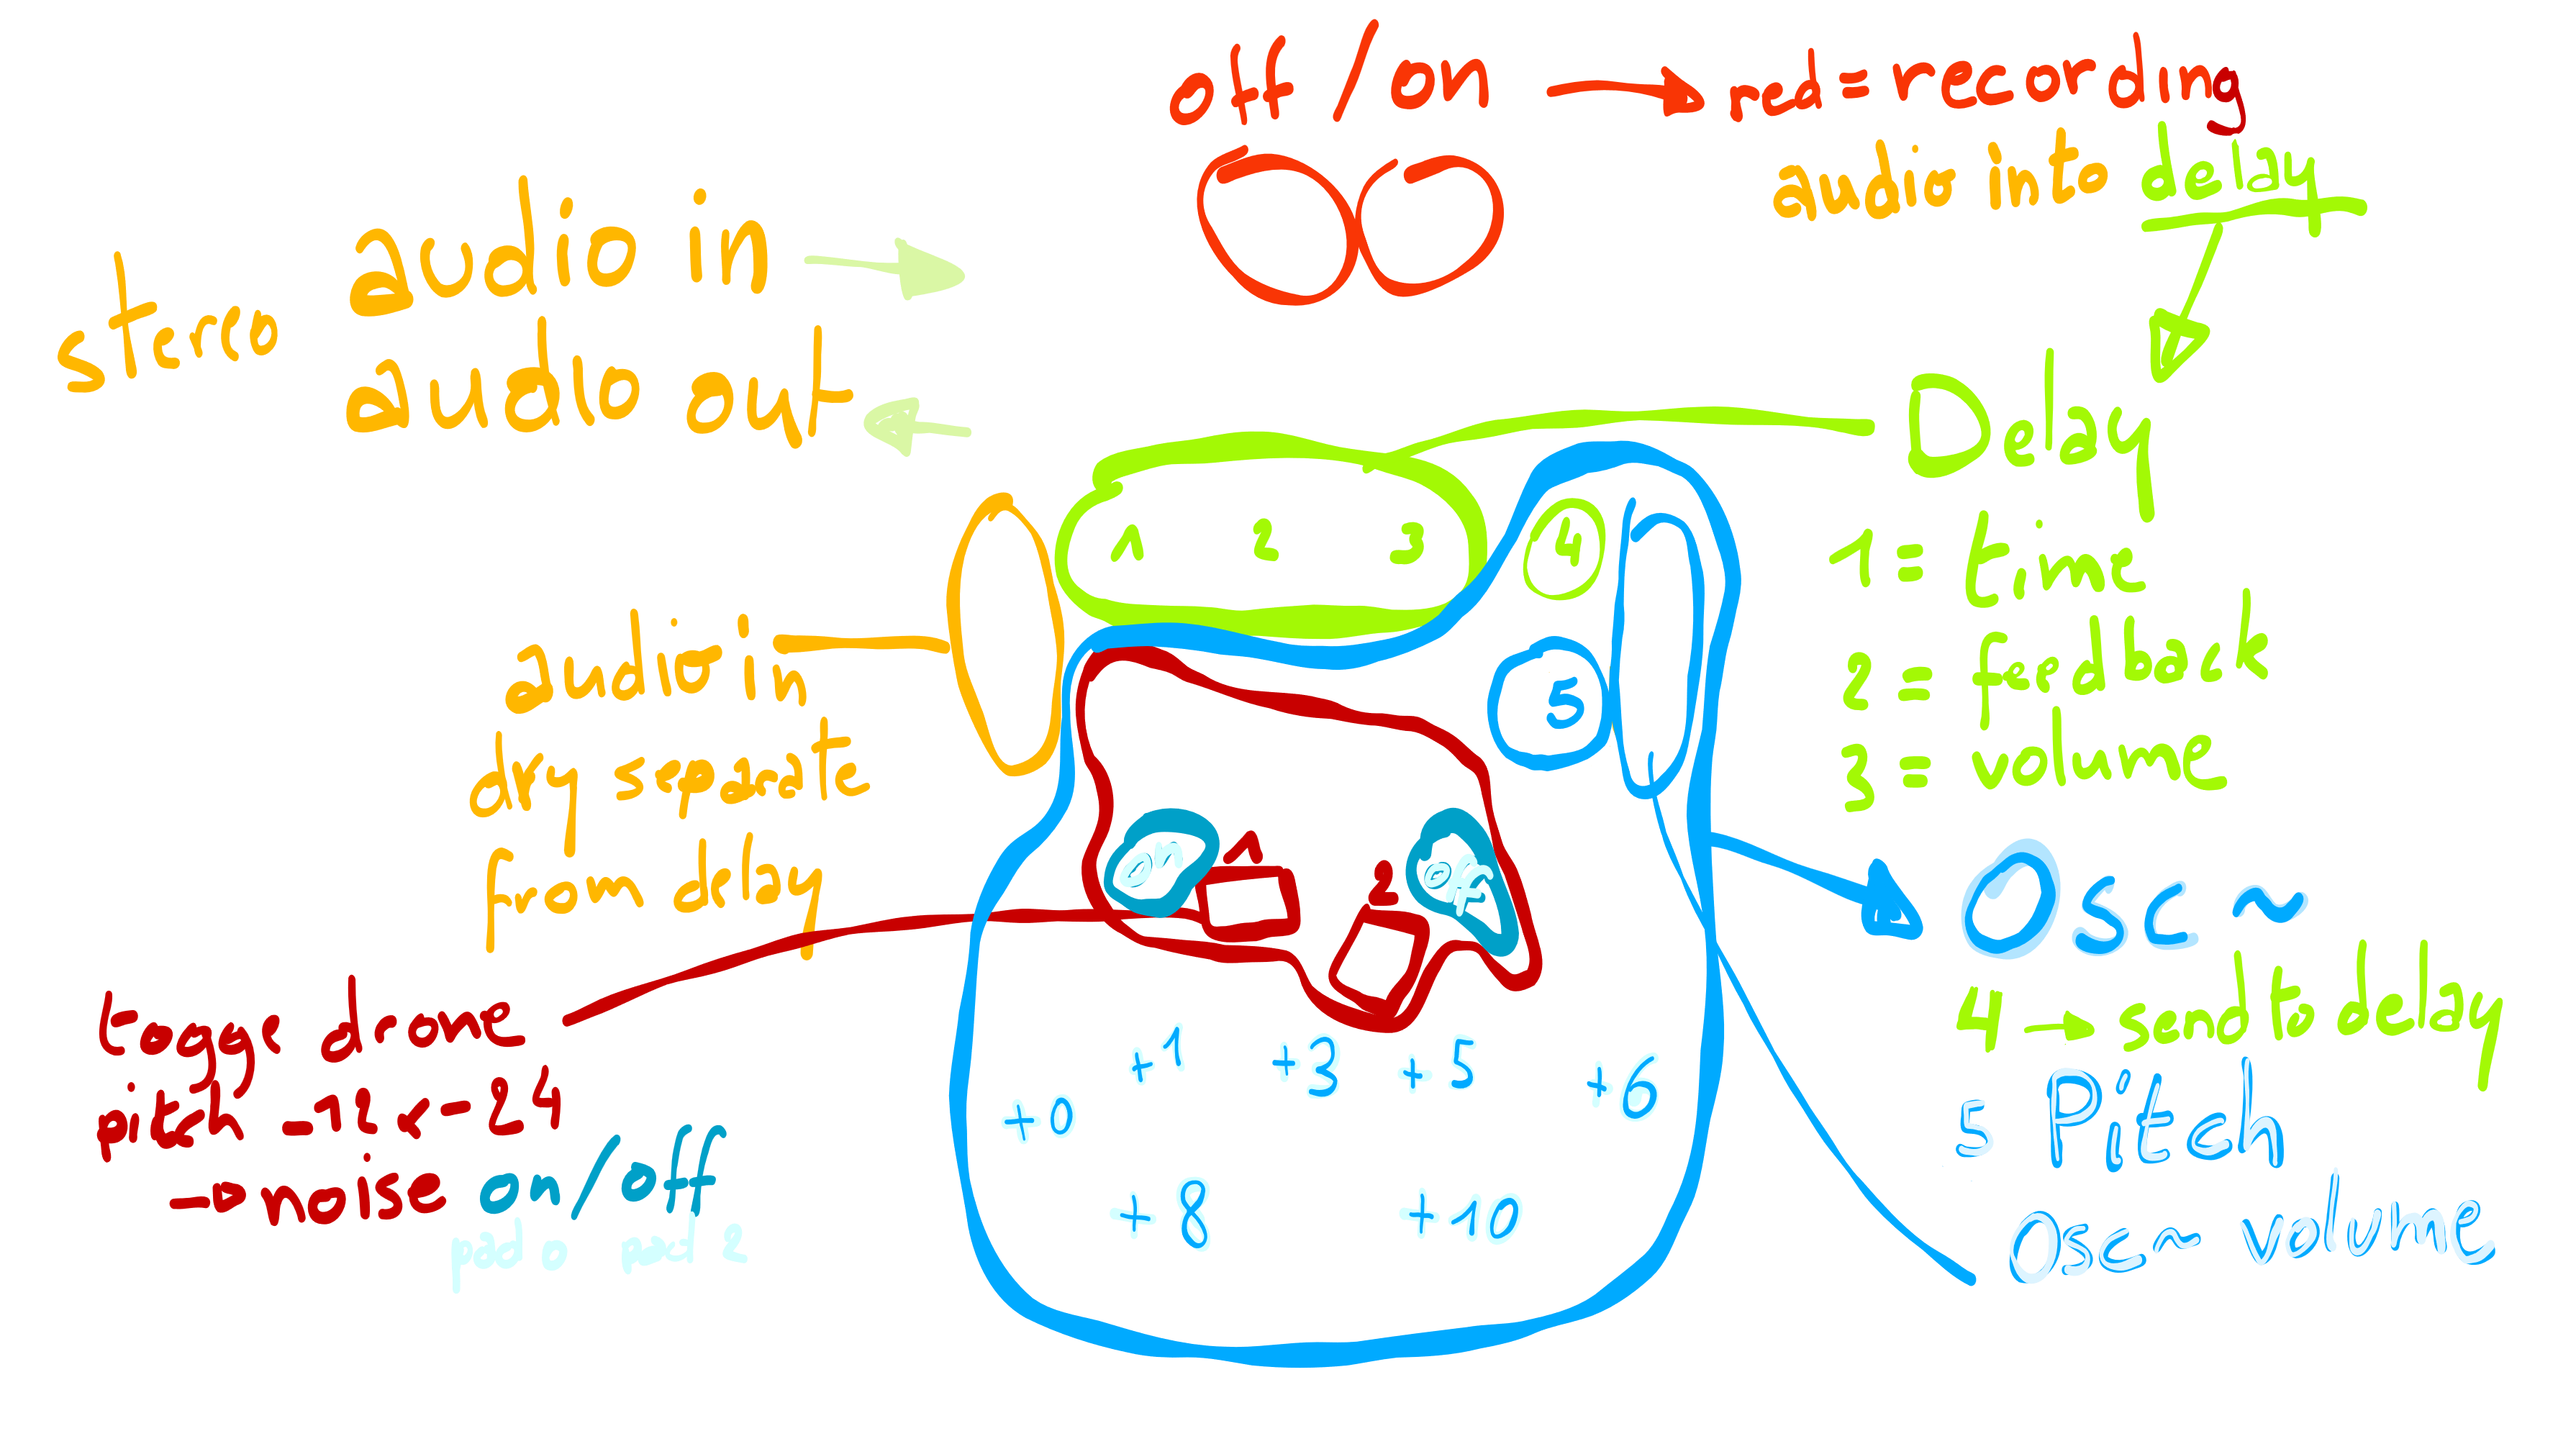 off / on → red = recording
audio into delay
stereo
audio in →
audio out ←
Delay
1 = time
2 = feedback
3 = volume
1 2 3 4
5
audio in
dry separate
from delay
on 1 2 off
Osc ~
4 → send to delay
5 Pitch
Osc~ volume
togge drone
pitch -12 < -24
→ noise on/off
pad 0 pad 2
+0 +1 +3 +5 +6
+8 +10